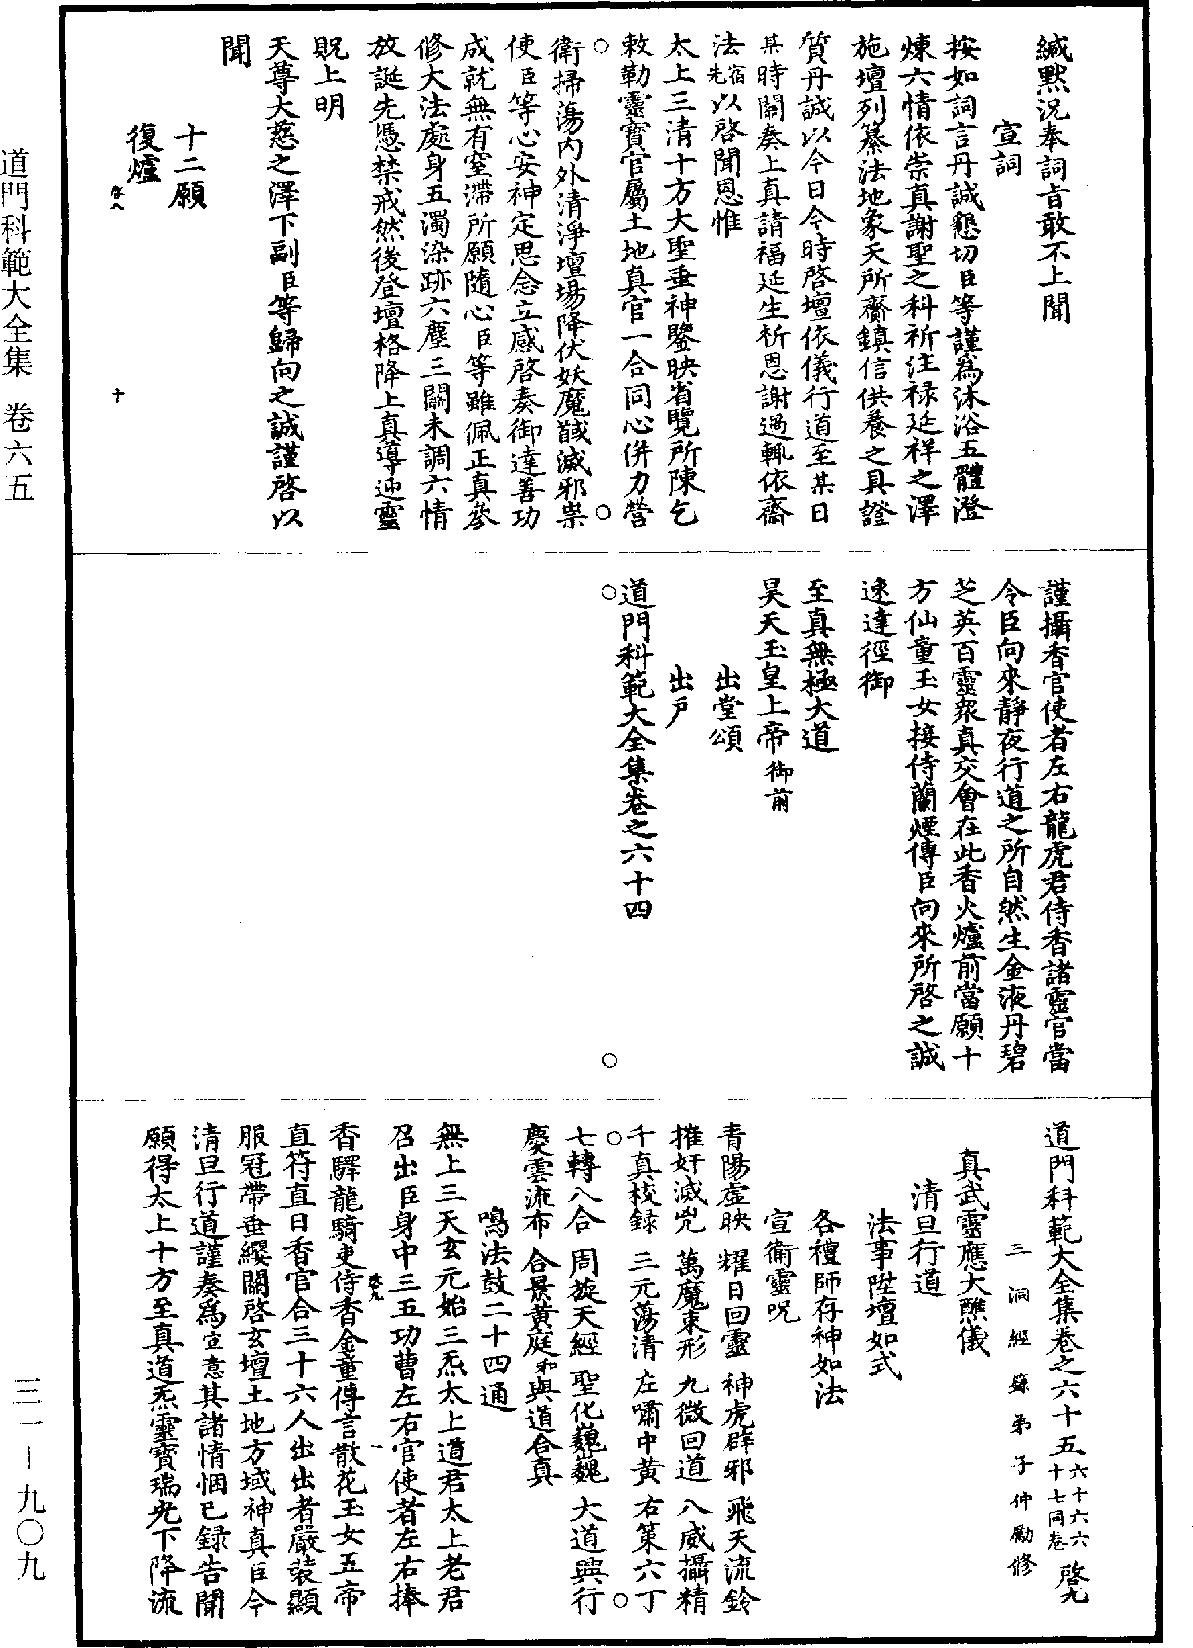 緘默況奉詞旨敢不上聞
宣詞
按如詞言丹誠懇切臣等謹爲沐浴五體澄
煉六情依崇真謝聖之科祈注祿延祥之澤
施壇列纂法地象天所齎鎮信供養之具證
質丹誠以今日今時啓壇依儀行道至某日
某時關奏上真請福延生祈恩謝過輒依齋
法宿先以啓聞恩惟
太上三清十方大聖垂神鑒映省覽所陳乞
敕勒靈寶官屬土地真官一合同心併力營
衛掃蕩內外清淨壇場降伏妖魔馘滅邪祟
使臣等心安神定思念立感啓奏御達善功
成就無有窒滯所願隨心臣等雖佩正真參
修大法處身五濁染跡六塵三關未調六情
放誕先憑禁戒然後登壇格降上真導迎靈
貺上明
天尊大慈之澤下副臣等歸向之誠謹啓以
聞
十二願
復爐
啓八
十
謹攝香官使者左右龍虎君侍香諸靈官當
令臣向來靜夜行道之所自然生金液丹碧
芝英百靈衆真交會在此香火爐前當願十
方仙童玉女接侍蘭煙傳臣向來所啓之誠
速達徑御
至真無極大道
昊天玉皇上帝御前
出堂頌
出戶
道門科範大全集卷之六十四
道門科範大全集卷之六十五 六十六六十七同卷 啓九
三洞經籙弟子仲勵修
真武靈應大醮儀
清旦行道
法事陞壇如式
各禮師存神如法
宣衛靈呪
青陽虛映 耀日回靈 神虎辟邪 飛天流鈴
摧奸滅兇 萬魔束形 九微回道 八威攝精
千真校錄 三元蕩清 左嘯中黃 右策六丁
七轉八合 周旋天經 聖化巍巍 大道興行
慶雲流布 合景黃庭 和與道合真
鳴法鼓二十四通
無上三天玄元始三炁太上道君太上老君
召出臣身中三五功曹左右官使者左右捧
香驛龍騎吏侍香金童傳言散花玉女五帝
直符直日香官合三十六人出出者嚴裝顯
服冠帶垂纓關啓玄壇土地方域神真臣今
清旦行道謹奏爲宣意其諸情悃已錄告聞
願得太上十方至真道炁靈寶瑞光下降流
啓九
一
道門科範大全集 卷六五
三一－九〇九